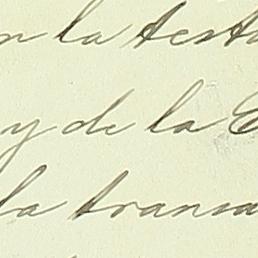 n la testa
y de la E
la transa